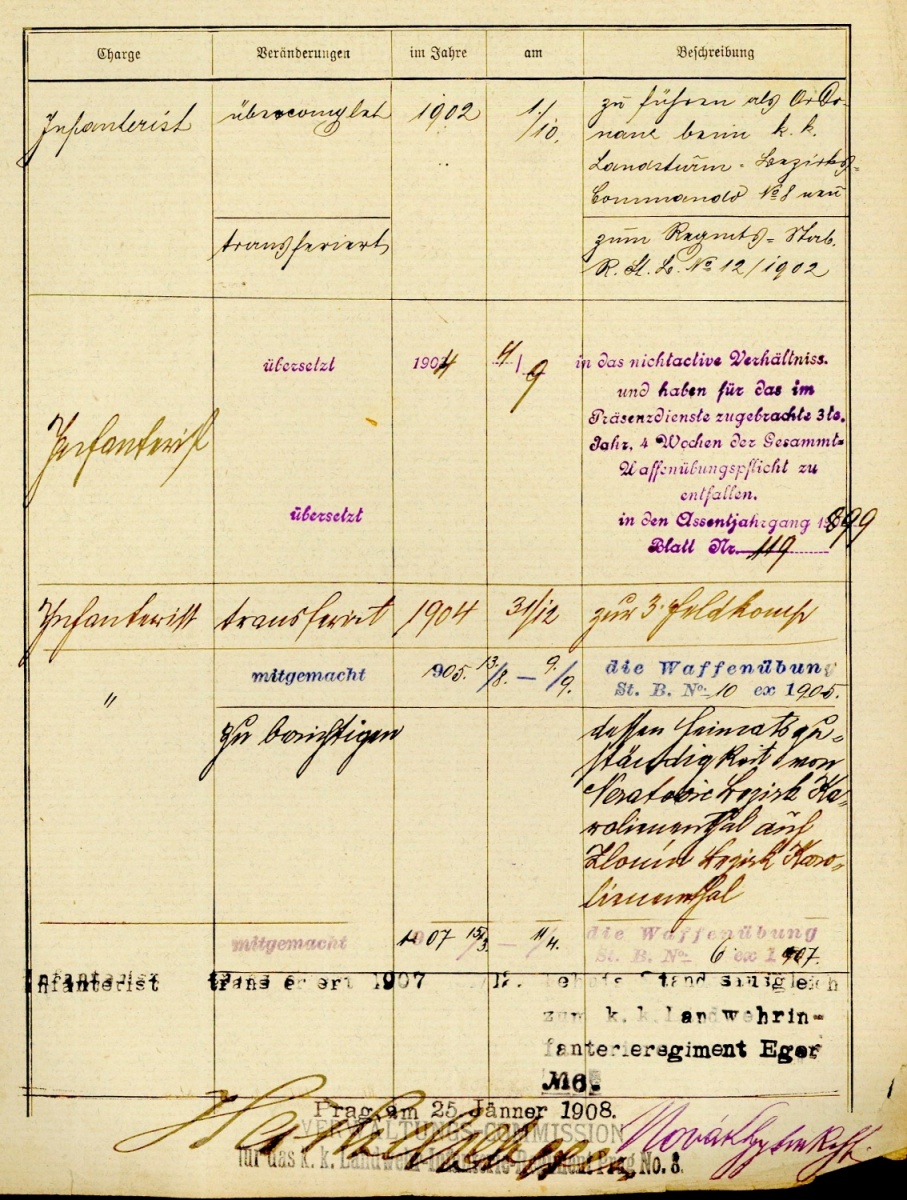 Charge Veränderungen im Jahre am Beschreibung
Infanterist übercomplet 1902 1./10. zu führen als Ordo-
nanz beim k. k.
Landsturm-Bezirks-
Commando No 8 neu
transferiert zum Regmts-Stab.
R. St. B. No 12/1902
übersetzt 1904 4/9 in das nichtactive Verhältniss.
und haben für das im
Präsenzdienste zugebrachte 3te.
Infanterist Jahr, 4 Wochen der Gesammt-
Waffenübungspflicht zu
entfallen.
übersetzt in den Assentjahrgang 1899
Blatt Nr. 119
Infanterist transferirt 1904 31/12 zur 3. Feldkomp
" mitgemacht 1905. 13./8. – 9./9. die Waffenübung
St. B. No. 10 ex 1905.
zu berichtigen dessen Heimatszu-
ständigkeit von
Neratovic Bezirk Ka-
rolinenthal auf
Bezirk Karo-
linenthal
mitgemacht 1907 15/3. – 11/4. die Waffenübung
St. B. No. 6 ex 1907.
Infanterist transferiert 1907 behufs Standesausgleich
zum k. k. Landwehrin-
fanterieregiment Eger
No 6.
Prag am 25 Jänner 1908.
VERWALTUNGS-COMMISSION
für das k. k. Landwehr-Infanterie-Regiment Prag No. 8.
Novák